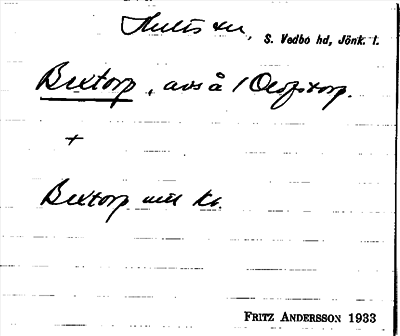 Hults sn, S. Vedbo hd, Jönk. l.
Bextorp, avs å 1 Olofstorp.
+
Bextorp utt ks.
FRITZ ANDERSSON 1933